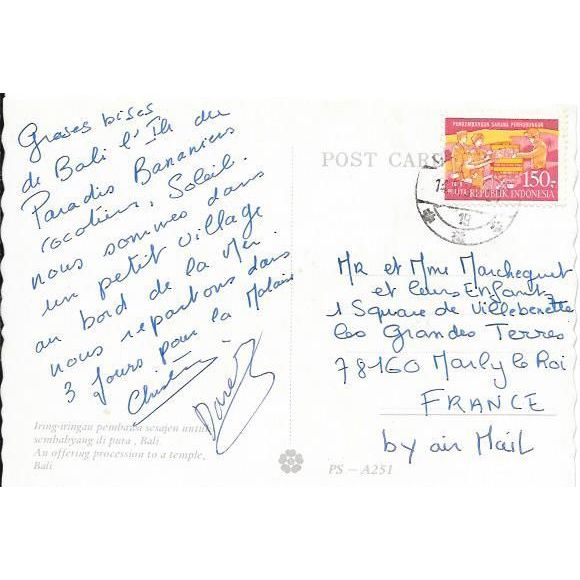 Groses bises
de Bali l'Ile du
Paradis Bananiers
cocotiers, Soleil.
nous sommes dans
un petit village
au bord de la Mer.
nous repartons dans
3 Jours pour la Malais
Iring-iringan pembawa sesajen untuk
sembahyang di pura, Bali
An offering procession to a temple,
Bali
POST CARD
PENGEMBANGAN SARANA PERHUBUNGAN
PELITA
150.-
REPUBLIK INDONESIA
19
MR et Mme Marchequet
et leurs Enfants
1 Square de Villebenette
les Grandes Terres
78160 Marly le Roi
FRANCE
by air MAIL
PS - A251